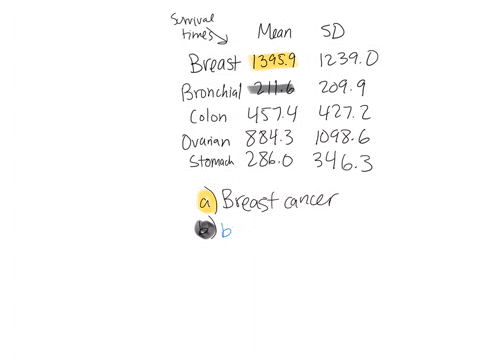 Survival
times Mean SD
Breast 1395.9 1239.0
Bronchial 211.6 209.9
Colon 457.4 427.2
Ovarian 884.3 1098.6
Stomach 286.0 346.3
a) Breast cancer
b) b